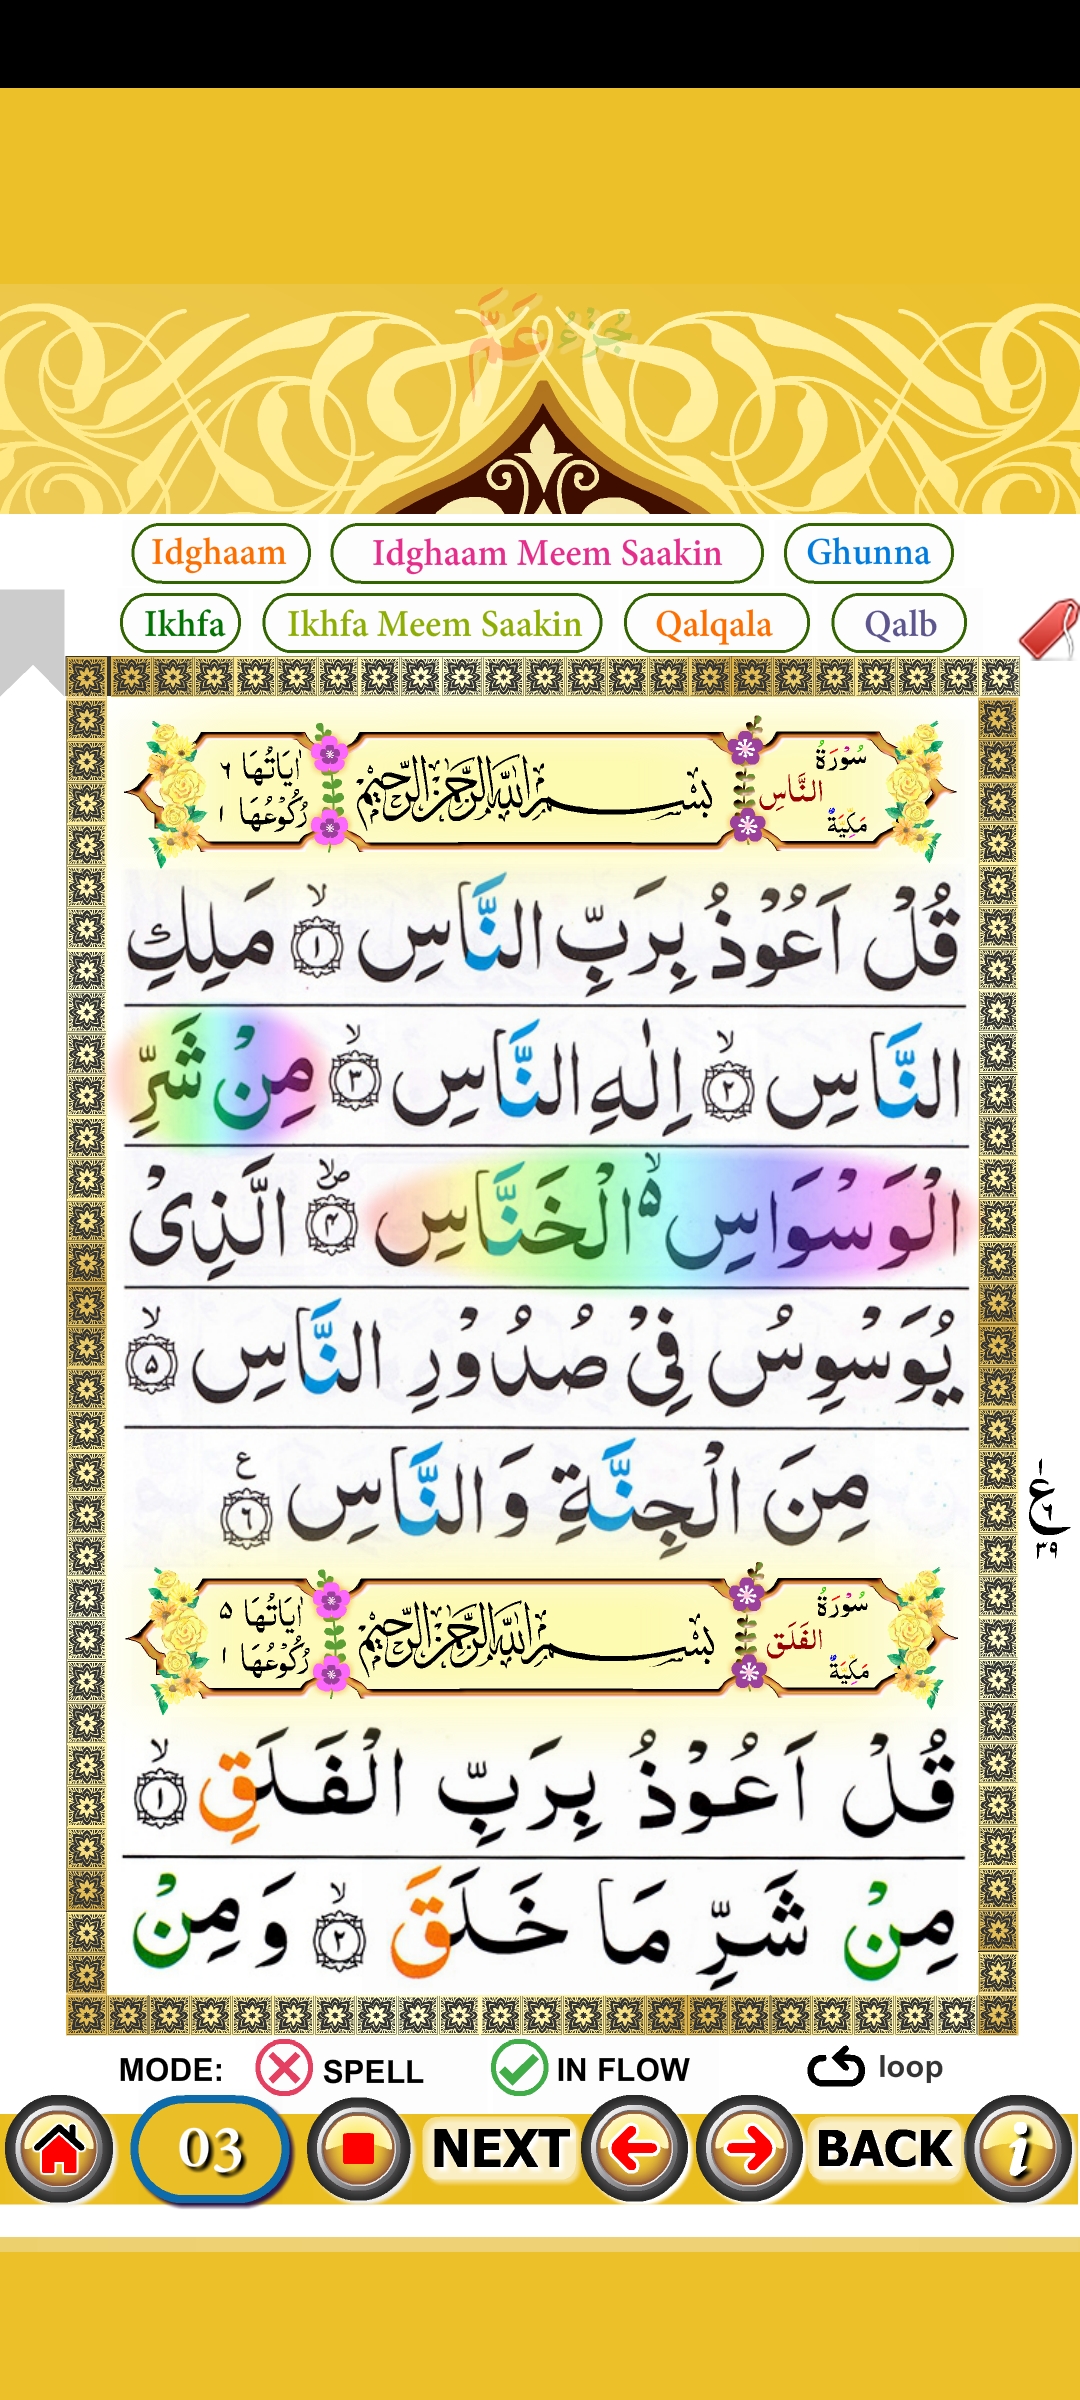 جُزْءُ عَمَّ
Idghaam Idghaam Meem Saakin Ghunna
Ikhfa Ikhfa Meem Saakin Qalqala Qalb
سُوْرَةُ النَّاسِ مَكِّيَّةٌ
بِسْمِ اللّٰهِ الرَّحْمٰنِ الرَّحِيْمِ
اٰيَاتُهَا ٦ رُكُوْعُهَا ١
قُلْ اَعُوْذُ بِرَبِّ النَّاسِ ۙ ١ مَلِكِ
النَّاسِ ۙ ٢ اِلٰهِ النَّاسِ ۙ ٣ مِنْ شَرِّ
الْوَسْوَاسِ ۙ۵ الْخَنَّاسِ ۪ۙ ۴ الَّذِىْ
يُوَسْوِسُ فِىْ صُدُوْرِ النَّاسِ ۙ ۵
مِنَ الْجِنَّةِ وَالنَّاسِ ع ٦
١ ع ٦ ٣٩
سُوْرَةُ الفَلَق مَكِّيَّةٌ
بِسْمِ اللّٰهِ الرَّحْمٰنِ الرَّحِيْمِ
اٰيَاتُهَا ۵ رُكُوْعُهَا ١
قُلْ اَعُوْذُ بِرَبِّ الْفَلَقِ ۙ ١
مِنْ شَرِّ مَا خَلَقَ ۙ ٢ وَمِنْ
MODE: SPELL IN FLOW loop
03 NEXT BACK i